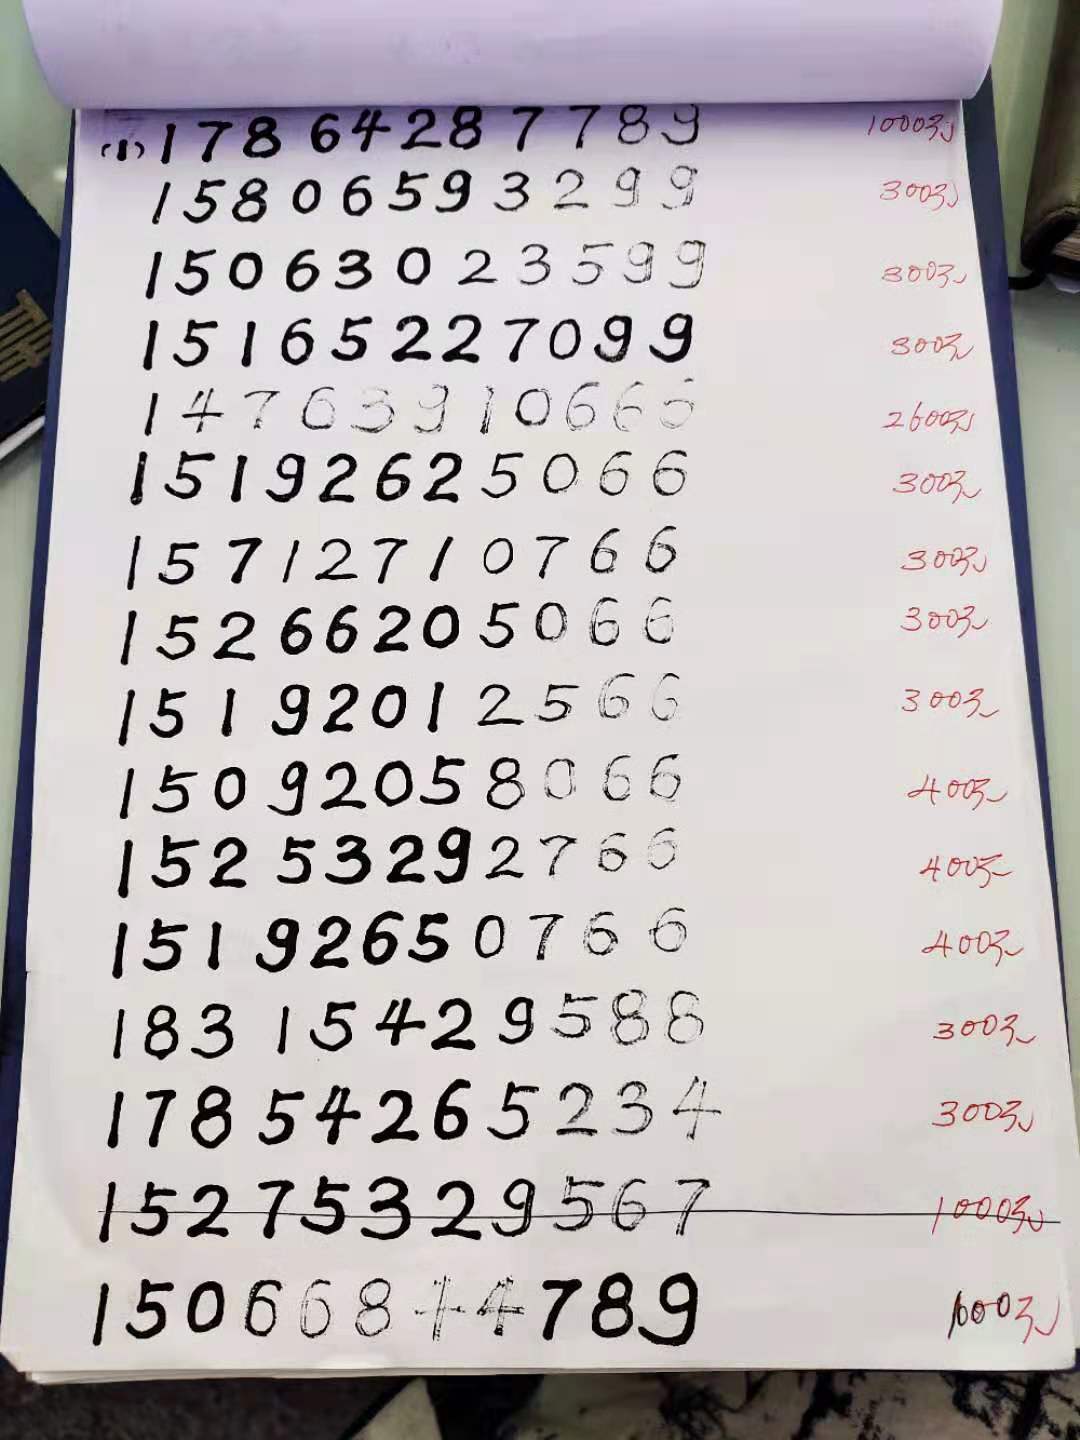 (1) 178 6428 7789 1000元
158 0659 3299 300元
150 630 23599 300元
151 6522 7099 300元
147 6391 0666 2600元
151 9262 5066 300元
157 1271 0766 300元
152 6620 5066 300元
151 9201 2566 300元
150 9205 8066 400元
152 5329 2766 400元
151 9265 0766 400元
183 1542 9588 300元
178 5426 5234 300元
152 7532 9567 1000元
150 6684 4789 1600元